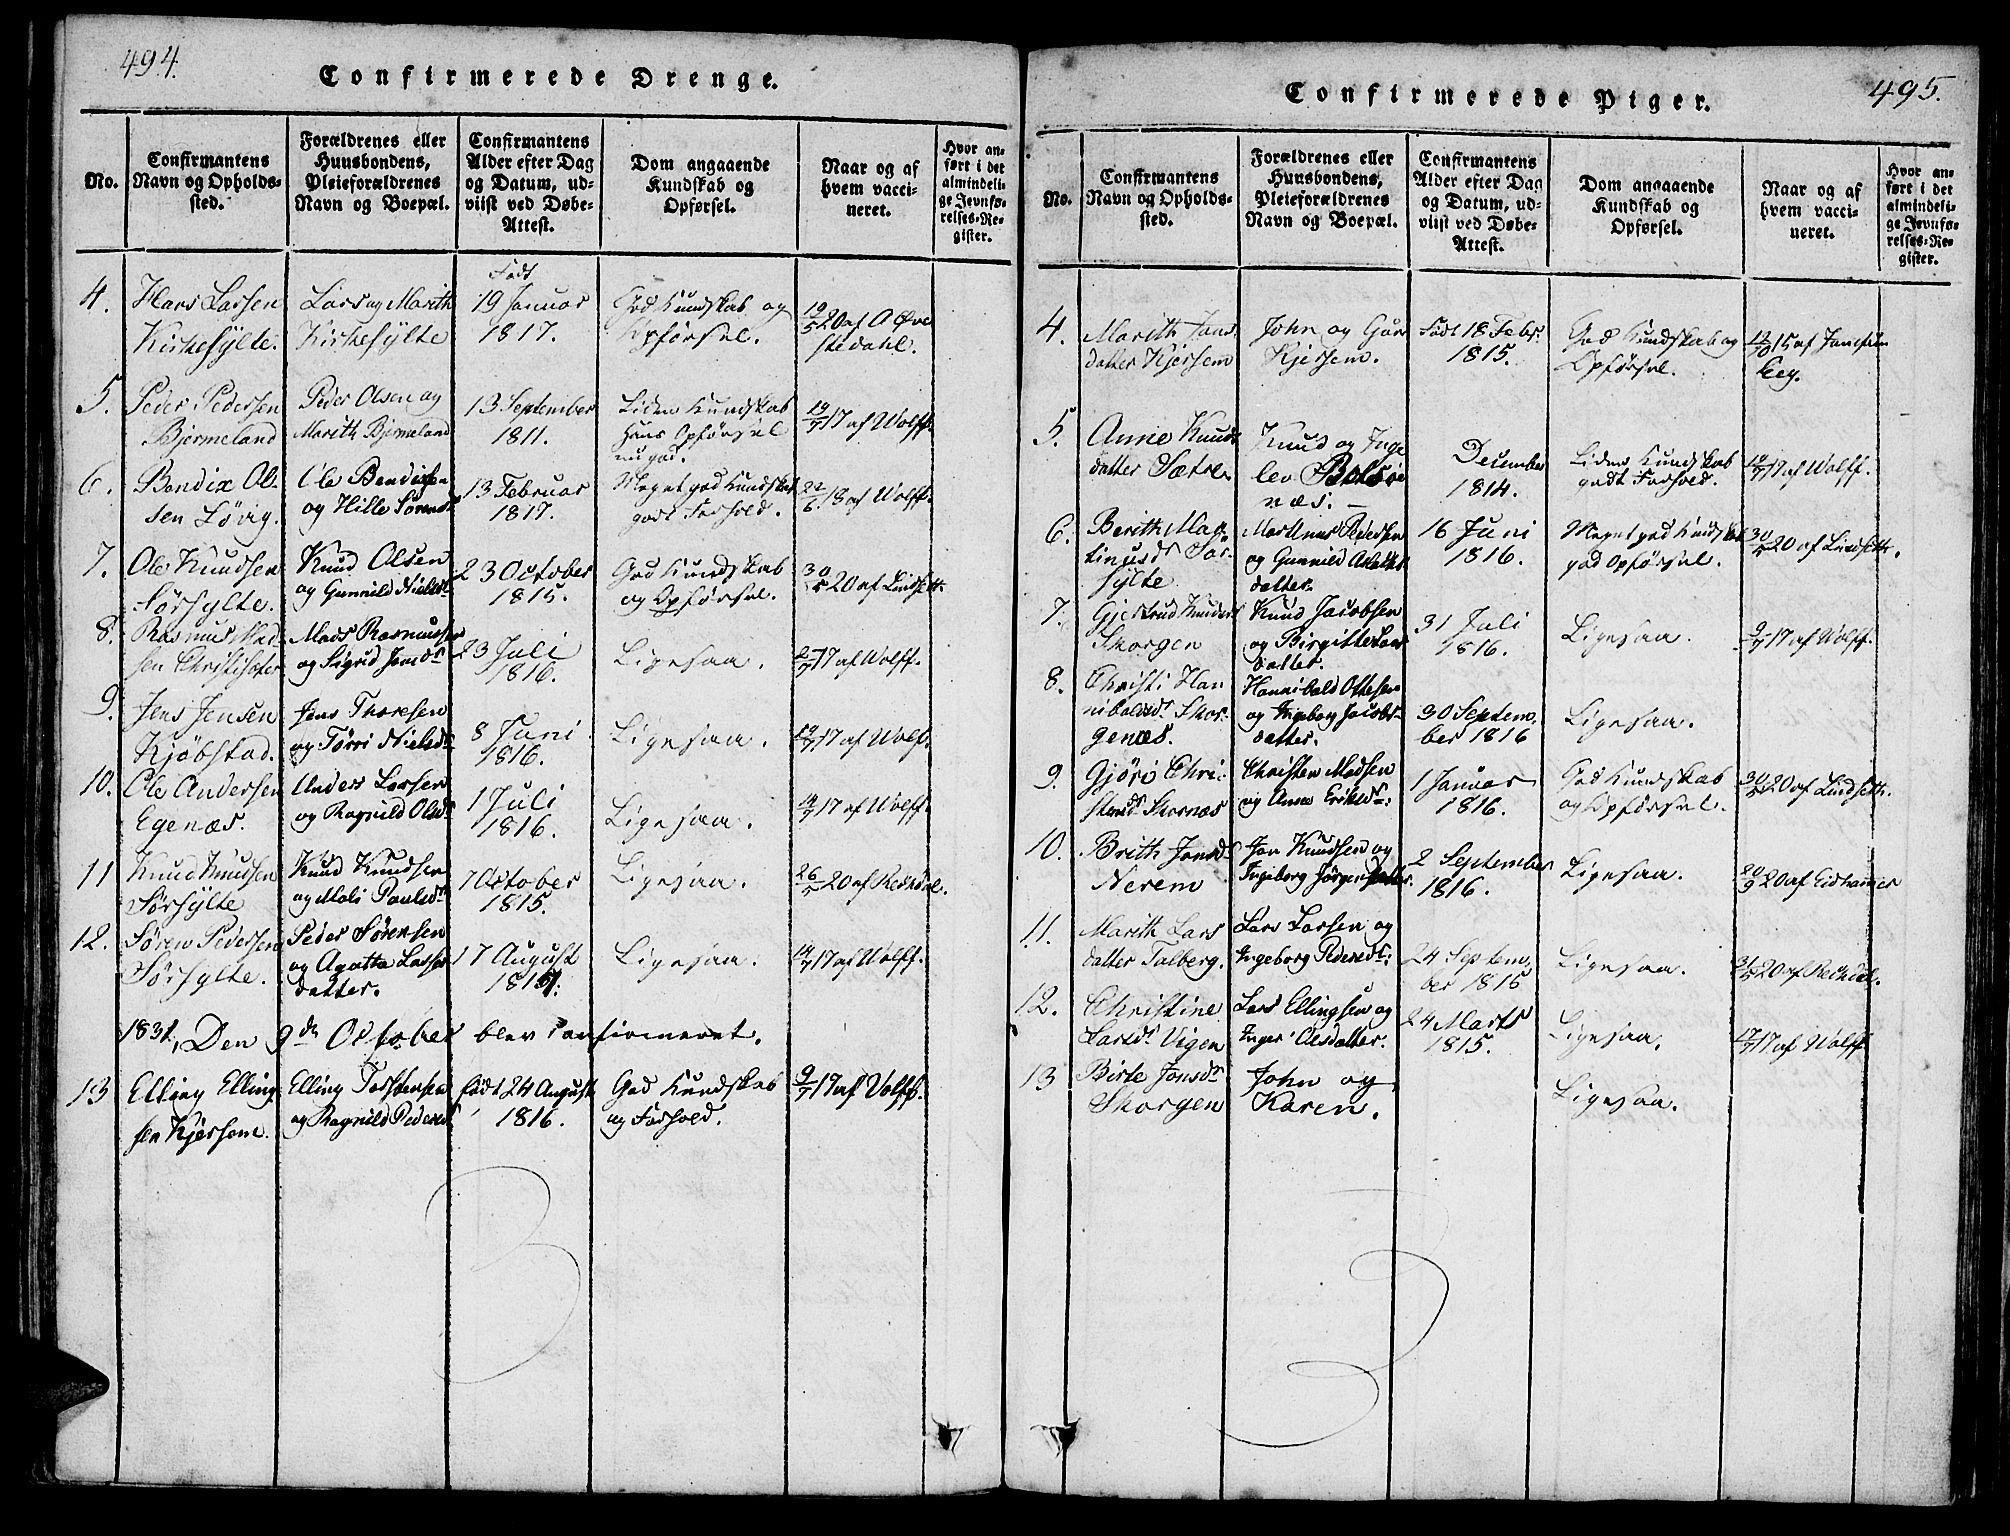 494.
Confirmerede Drenge.
No.
Confirmantens
Navn og Opholds-
sted.
Forældrenes eller
Huusbondens,
Pleieforældrenes
Navn og Boepæl.
Confirmantens
Alder efter Dag
og Datum, ud-
viist ved Døbe-
Attest.
Dom angaaende
Kundskab og
Opførsel.
Naar og af
hvem vacci-
neret.
Hvor an-
ført i det
almindeli-
ge Jevnfø-
relses-Re-
gister.
4.
Hans Larsen
Kirkesylte.
Lars og Marith
Kirkesylte
Født
19 Januar
1817.
God Kundskab og
Opførsel.
19/5 20 af A Øve
stedahl.
5.
Peder Pedersen
Bjermeland
Peder Olsen og
Marith Bjermeland
13 September
1811.
Liden Kundskab
Hans Opførsel
nu god.
19/7 17 af Wolff.
6.
Bendix Ol-
sen Løvig.
Ole Bendixsen
og Hille Sørensd
13 Februar
1817.
Meget god Kundskab
godt Forhold.
22/6 18 af Wolff.
7.
Ole Knudsen
Sørsylte.
Knud Olsen
og Gunnild Nielsd.
23 October
1815.
God Kundskab
og Opførsel.
30/5 20 af Lindseth.
8.
Rasmus Mad-
sen
Mads Rasmussen
og Sigrid Jonsdr
23 Juli
1816.
Ligesaa.
2/7 17 af Wolff.
9.
Jens Jensen
Kjøbstad.
Jens Thoresen
og Torri Nielsdr
8 Juni
1816.
Ligesaa.
19/7 17 af Wolf.
10.
Ole Andersen
Egenæs.
Anders Larsen
og Ragnild Olsdr
1 Juli
1816.
Ligesaa.
19/7 17 af Wolff.
11
Knud Knudsen
Sørsylte
Knud Knudsen
og Mali Paulsdr
7 October
1815.
Ligesaa.
26/5 20 af Rekdal.
12.
Søren Pedersen
Sørsylte.
Peder Sørensen
og Agatha Lasses
datter.
17 August
Ligesaa.
19/7 17 af Wolff.
1831, Den 9de October blev confirmeret.
13
Elling Elling-
sen Kjersem.
Elling Torstensen
og Ragnild Pedersd
født 24 August
1816.
God Kundskab
og Forhold.
9/7 17 af Wolff.
495.
Confirmerede Piger.
No.
Confirmantens
Navn og Opholds-
sted.
Forældrenes eller
Huusbondens,
Pleieforældrenes
Navn og Boepæl.
Confirmantens
Alder efter Dag
og Datum, ud-
viist ved Døbe-
Attest.
Dom angaaende
Kundskab og
Opførsel.
Naar og af
hvem vacci-
neret.
Hvor an-
ført i det
almindeli-
ge Jevnfø-
relses-Re-
gister.
4.
Marith Jons
datter Kjersem
John og Guri
Kjersem.
Født 18 Febr.
1815.
God Kundskab og
Opførsel.
5.
Anne Knuds
datter Sætre.
Knud og Inge
lev Bolsø
næs. —
December
1814.
Liden Kundskab
godt Forhold.
19/7 17 af Wolff.
6.
Berith Mar-
tinusdr Sør-
sylte
Martinus Pedersen
og Gunnild
datter.
16 Juni
1816.
Meget god Kundskab
god Opførsel.
30/5 20 af Lindseth.
7.
Gjertrud Knudsd
Skorgen
Knud Jacobsen
og Birgitte Lars
datter.
31 Juli
1816.
Ligesaa.
9/7 17 af Wolff.
8.
Christi Han
nibalsdr Skor-
genæs.
Hannibald Ottesen
og Ingeborg Jacobs-
datter.
30 Septem-
ber 1816
Ligesaa.
9.
Gjøri Chri-
stensdr Skornæs
Christen Madsen
og Anne Eriksdr.
1 Januar
1816.
God Kundskab
og Opførsel.
30/5 20 af Lindseth.
10.
Brith Jonsdr
Nerem
Jon Knudsen og
Ingeborg Jørgensdatter.
2 September
1816.
Ligesaa.
20/9 20 af Eidhammer
11.
Marith Lars
datter Talberg.
Lars Larsen og
Ingeborg Pedersdr.
24 Septem-
ber 1816
Ligesaa.
31/5 20 af Rekdal.
12.
Christine
Larsdr Vigen
Lars Ellingsen og
Inger Olsdatter.
24 Marts
1815.
Ligesaa.
17/7 17 af Wolff
13
Birte Jonsdr
Skorgen
John og
Karen.
Ligesaa.